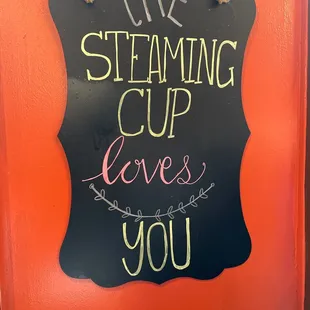 THE
STEAMING
CUP
loves
YOU